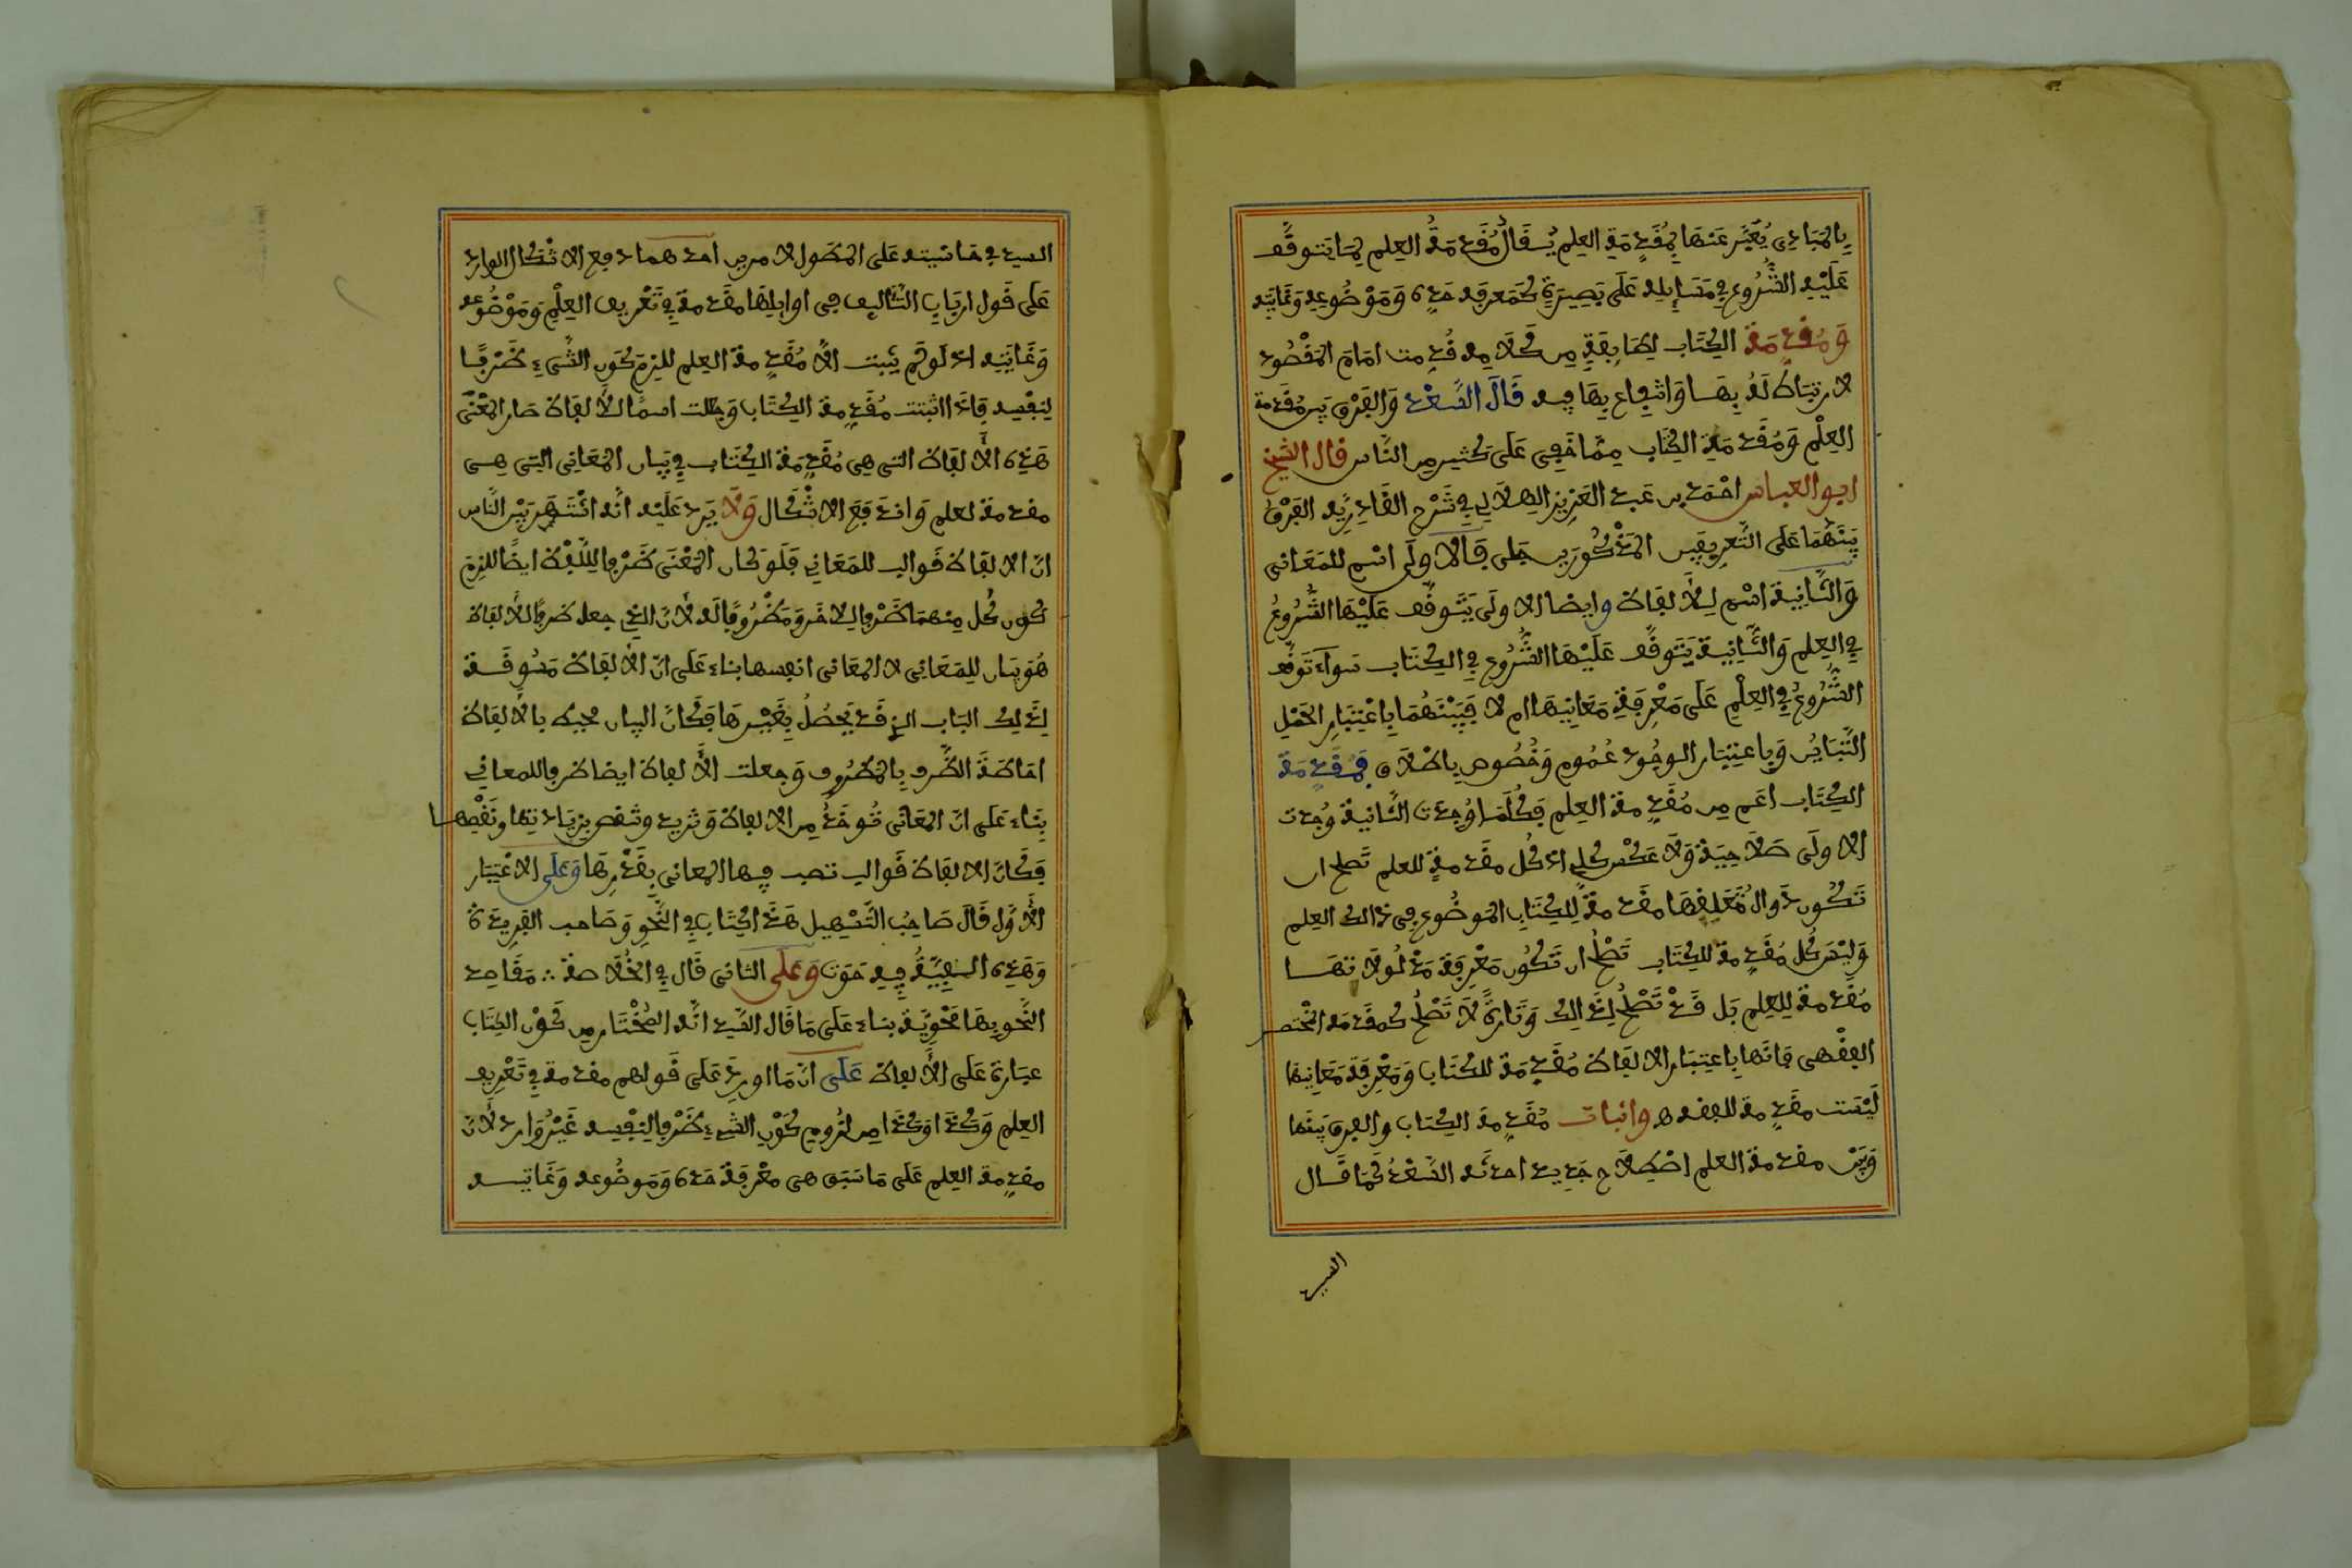 بِالْمَبَادِي يُعَبَّر عَنهَا بِمُقَدِّمَةِ العِلمِ يُقَالُ مُقَدِّمَةُ العِلم لِمَا يَتوقَّف
عَلَيْهِ الشُّرُوع في مَسَايلِهِ عَلَى بَصِيرَةٍ كَمَعرفَة حَدِّه وَمَوْضُوعِهِ وَغَايَتِه
وَمُقدِّمَة الكِتَاب لِطَايِفَةٍ مِن كَلَامِه قُدِّمت امَامَ المَقْصُود
لارتبَاط لَهُ بِهَا وَانتِفاع بِهَا فِيه قَالَ السَّعْدُ وَالفَرْق بَين مُقَدِّمَة
العِلْم وَمُقَدِّمَةِ الكِتَاب مِمَّا خَفِي عَلَى كَثيرٍ مِن النَّاس قال الشيخ
ابو العباس احْمَد بن عَبد العَزِيزِ الهِلَالي في شَرْحِ القَادِرِيَّة الفَرْقُ
بَيْنَهُمَا عَلى التَّعرِيفَيْن المَذْكُورَين جَلي فَالاولَى اسْم للمَعَانِي
وَالثَّانِيَة اسْم لِلالفَاظ وايضا الاولَى يَتَوقَّف عَلَيْهَا الشُّرُوعُ
فِي العِلم وَالثَّانِيَة يَتَوقَّف عَلَيْهَا الشُّرُوع فِي الكِتَاب سَوآء تَوَقَّف
الشُّرُوعُ فِي العِلْمِ عَلَى مَعْرِفَةِ مَعَانِيهَا ام لا فَبَيْنَهُمَا بِاعْتِبَارِ الحَمْلِ
التَّبَايُن وَباعتِبَار الوجُود عُمُوم وَخُصُوص بِاطْلَاق فَمُقَدِّمَة
الكِتَاب اعَم مِن مُقَدِّمَة العِلمِ فَكُلَّمَا وُجِدَت الثَّانِيَة وُجِدت
الاولَى صَلَاحِيَة وَلَا عَكْس كُلِّي اذ كُل مقَدمَةٍ للعلم تَصلح ان
تَكُون دَوال مُتَعَلِّقهَا مقَدمَة لِلكِتَابِ المَوضُوع في ذَالك العِلم
وَلَيْسَ كُل مُقَدِّمَة للكِتَاب تَصْلُحُ ان تَكُون مَعْرِفَة مَدْلُولَاتهَا
مُقَدِّمَة لِلعِلمِ بَل قَدْ تَصْلُحُ لِذَالِك وَتَارَةً لَا تَصْلُحُ كَمقَدمَة المُختَصر
الفِقْهِي فَانَّهَا بِاعتِبَار الالفَاظ مُقَدِّمَة للكِتَاب وَمَعْرِفَة مَعَانِيهَا
لَيْسَت مقَدِّمَة للفقه ه واثبات مُقَدِّمَة الكِتَاب والفرق بَينَها
وَبَيْنَ مقدمَة العلم اصْطِلَاح جَدِيد احدَثه السَّعْدُ كَمَا قَال
السيد
السيد في حَاشِيَته عَلى المطَول لامرين احدهما دفع الاشْكال الوارد
عَلَى قَول اربَاب التَّئاليف في اوايِلِهَا مقَدمَة في تَعْرِيف العِلْمِ وَمَوْضُوعه
وَغَايَتِه اذ لَو لَم يَثبت الّا مُقَدِّمة العِلم للزِمَ كَون الشَّىء ظَرْفًا
لِنَفْسِه فاذَا اثبتت مُقَدِّمَة الكِتَاب وَجعلت اسمًا لِلالفَاظ صَار المَعْنَى
هَذِه الالفَاظ التي هي مُقَدِّمَة الكِتَاب في بَيَان المَعَاني التِي هِي
مقدمَة لعلم وَاندَفَعَ الاشْكَال وَلَا يَرد عَلَيْه انَّه اشْتَهَر بَيْن النَّاس
انّ الالفَاظ قَوالب للمَعَاني فَلَو كَان المَعْنَى ظَرْفا لِلَّفْظ ايضًا للزِمَ
كَون كُل مِنهمَا ظَرْفا لِلاخَر وَمَظْرُوفًا لَه لانّ الذي جعل ظرفًا للالفَاظ
هُوَ بَيَان للِمَعَانِي لا المَعَاني انفسها بناء عَلَى انّ الالفَاظ مَسُوقَة
لِذَلِك البَاب الذي قَد يَحْصُلُ بِغَيْرهَا فكَانَ البيان محيط بالالفَاظ
احَاطَةَ الظَّرف بِالمَظرُوف وَجعلت الالفاظ ايضا ظرفا للمعاني
بِنَاء عَلى انّ المَعَاني تُوخَذُ مِن الالفاظ وَتزيد وتنقص بِزيَادَتِهَا وَنَقْصِهَا
فَكَانّ الالفَاظ قَوالب تصب فِيهَا المعاني بِقَدْرِهَا وَعَلَى الاعْتِبَار
الاوَّل قَالَ صَاحِبُ التَّسْهِيل هَذَا كِتَاب في النَّحو وَصَاحب الفَرِيدَة
وَهَذِه الفِيَّةٌ فِيهِ حَوَت وَعَلَى الثاني قَال في الخُلَاصَة ∴ مَقَاصِد
النَّحو بِهَا مَحْوِيَّة بنَاء عَلَى مَا قَال السَّيد انَّه المُخْتَار مِن كَوْن الكِتَاب
عبَارة عَلَى الالفاظ عَلَى انّ مَا اورِدَ عَلَى قَولهم مقدمَة في تَعْرِيف
العِلم وَكَذَا وَكَذَا مِن لُزُوم كَوْن الشَّىء ظَرْفا لِنَفْسِه غَيْرُ وَارِد لانّ
مقدِّمَة العِلم عَلَى مَا سَبَق هي مَعْرفَة حَدِّه وَمَوضُوعه وَغَايَتِه